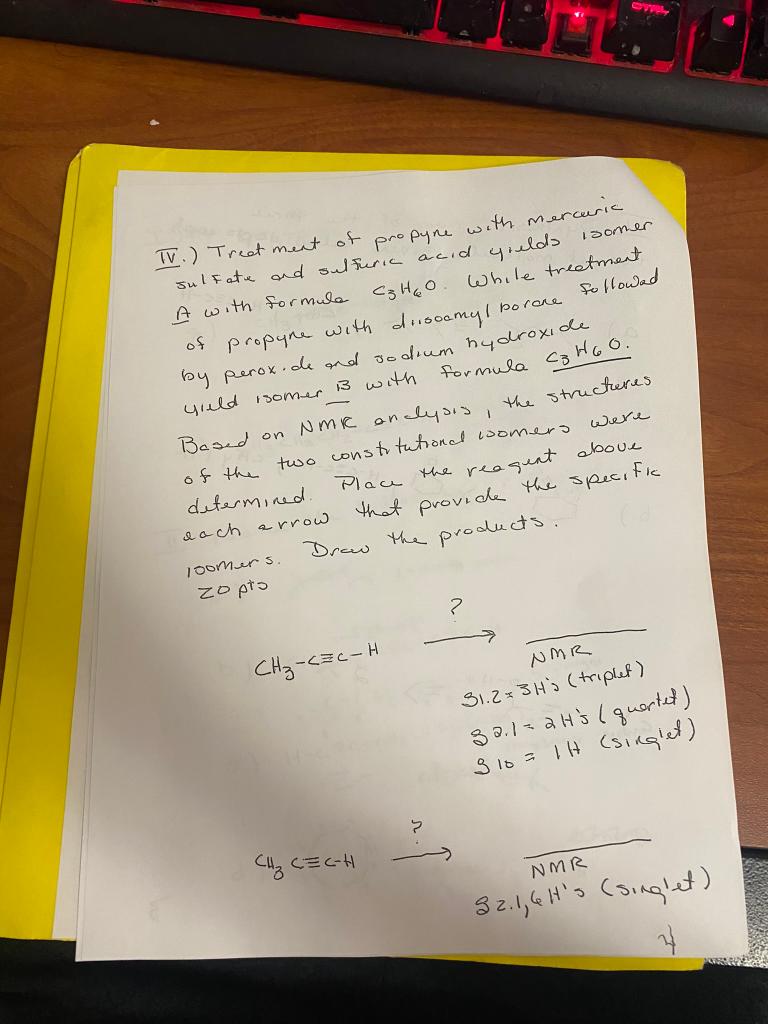 IV.) Treatment of propyne with mercuric
sulfate and sulfuric acid yields isomer
A with formula C3H6O. While treatment
of propyne with diisoamyl borane followed
by peroxide and sodium hydroxide
yield isomer B with formula C3H6O.
Based on NMR analysis, the structures
of the two constitutional isomers were
determined. Place the reagent above
each arrow that provide the specific
isomers. Draw the products.
20 pts
?
CH3-C≡C-H →
NMR
δ1.2 = 3H's (triplet)
δ2.1 = 2H's (quartet)
δ10 = 1H (singlet)
?
CH3 C≡C-H →
NMR
δ2.1, 6H's (singlet)